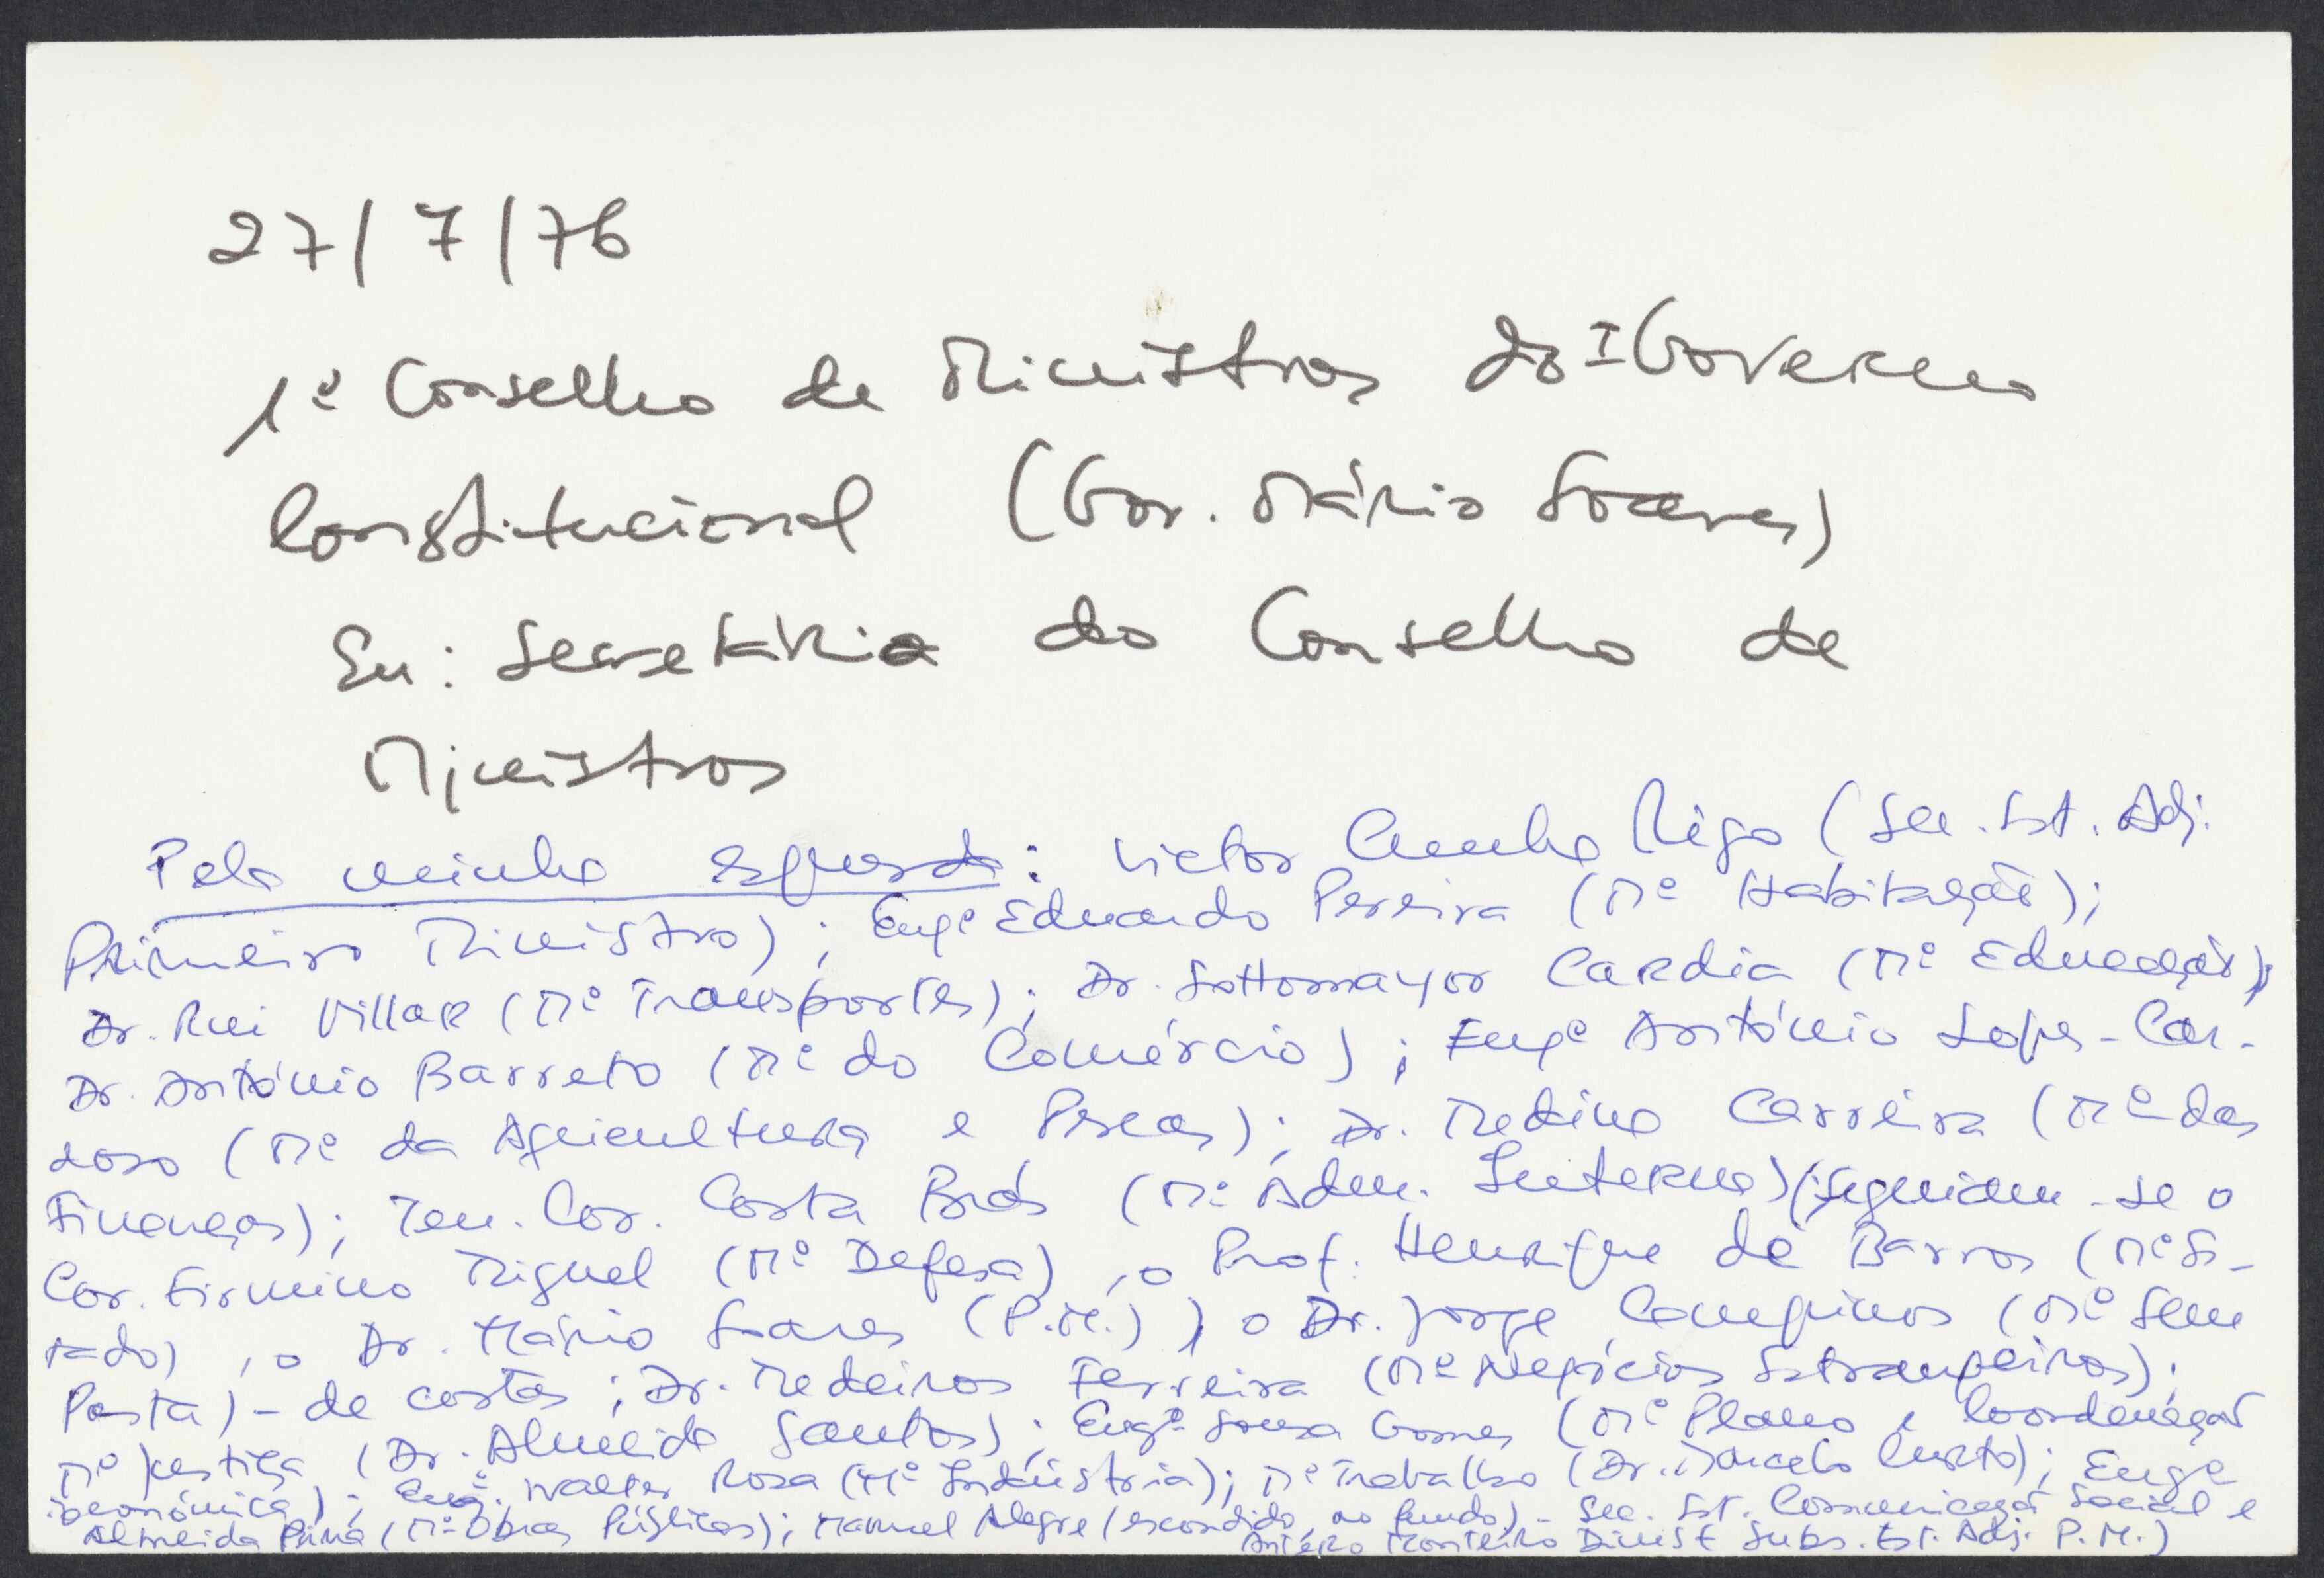 27/7/76
1º Conselho de Ministros do I Governo
Constitucional (Gov. Mário Soares)
Eu: Secretária do Conselho de
Ministros
Pela minha esquerda: Victor Cunha Rego (Sec. Est. Adj.
Primeiro Ministro); Engº Eduardo Pereira (Mº Habitação);
Dr. Rui Villar (Mº Transportes); Dr. Sottomayor Cardia (Mº Educação);
Dr. António Barreto (Mº do Comércio); Engº António Lopes-Car-
doso (Mº da Agricultura e Pescas); Dr. Medina Carreira (Mº das
Finanças); Ten. Cor. Costa Brás (Mº Adm. Interna) (seguiam-se o
Cor. Firmino Miguel (Mº Defesa), o Prof. Henrique de Barros (Mº Es-
tado), o Dr. Mário Soares (P.M.)), o Dr. Jorge Campinos (Mº Sem
Pasta) - de costas; Dr. Medeiros Ferreira (Mº Negócios Estrangeiros);
Mº Justiça (Dr. Almeida Santos); Engº Sousa Gomes (Mº Plano e Coordenação
económica); Engº Walter Rosa (Mº Indústria); Mº Trabalho (Dr. Marcelo Curto); Engº
Almeida Pina (Mº Obras Públicas); Manuel Alegre (escondido, ao fundo) - Sec. Est. Comunicação Social e
António Monteiro Diniz Subs. Est. Adj. P.M.)